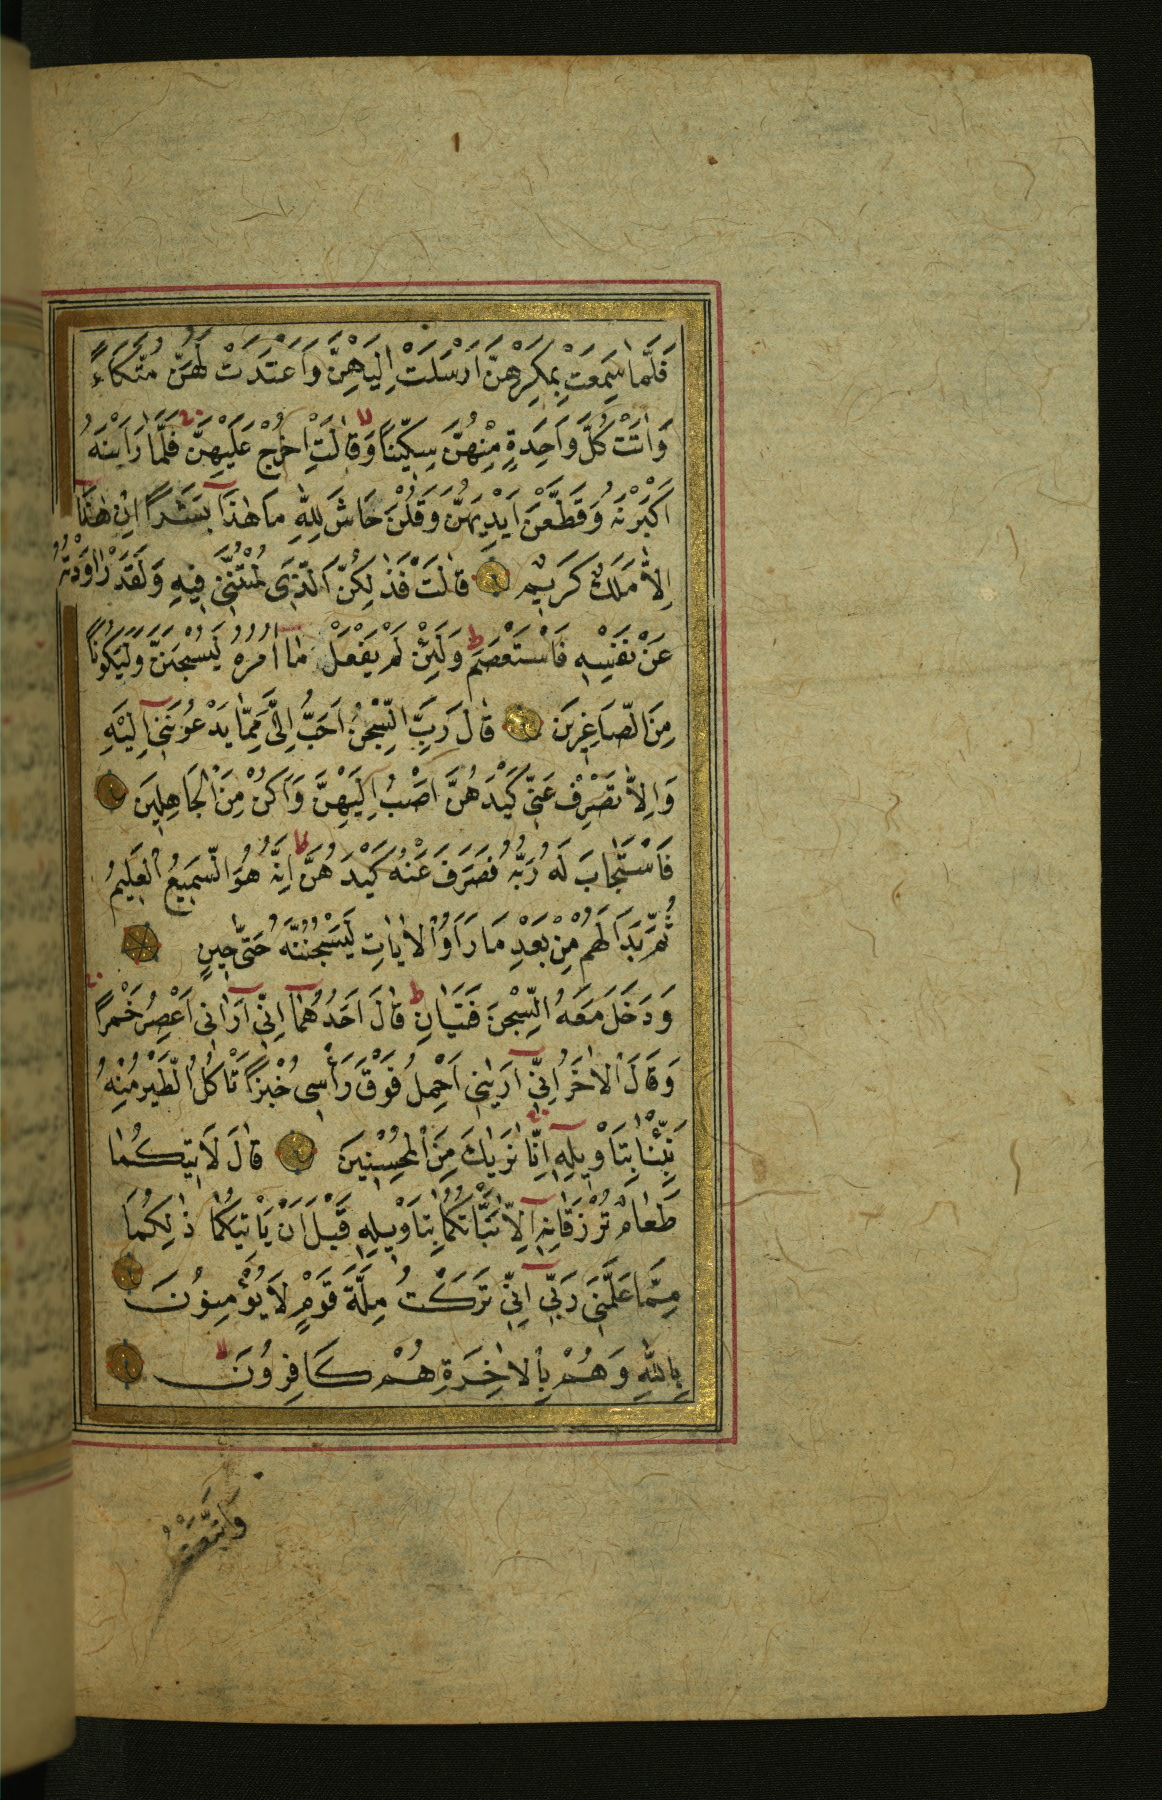 فَلَمَّا سَمِعَتْ بِمَكْرِهِنَّ اَرْسَلَتْ اِلَيْهِنَّ وَاَعْتَدَتْ لَهُنَّ مُتَّكَاءً
وَاٰتَتْ كُلَّ وَاحِدَةٍ مِنْهُنَّ سِكّينًا وَقَالَتِ اخْرُجْ عَلَيْهِنَّ فَلَمَّا رَاَيْنَهُ
اَكْبَرْنَهُ وَقَطَّعْنَ اَيْدِيَهُنَّ وَقُلْنَ حَاشَ لِلّٰهِ مَا هٰذَا بَشَرًا اِنْ هٰذَا
اِلَّا مَلَكٌ كَرِيمٌ قَالَتْ فَذٰلِكُنَّ الَّذِى لُمْتُنَّنِى فِيهِ وَلَقَدْ رَاوَدْتُهُ
عَنْ نَفْسِهِ فَاسْتَعْصَمَ وَلَئِنْ لَمْ يَفْعَلْ مَا اٰمُرُهُ لَيُسْجَنَنَّ وَلَيَكُونًا
مِنَ الصَّاغِرِينَ قَالَ رَبِّ السِّجْنُ اَحَبُّ اِلَىَّ مِمَّا يَدْعُونَنِى اِلَيْهِ
وَاِلَّا تَصْرِفْ عَنِّى كَيْدَهُنَّ اَصْبُ اِلَيْهِنَّ وَاَكُنْ مِنَ الْجَاهِلِينَ
فَاسْتَجَابَ لَهُ رَبُّهُ فَصَرَفَ عَنْهُ كَيْدَهُنَّ اِنَّهُ هُوَ السَّمِيعُ الْعَلِيمُ
ثُمَّ بَدَا لَهُمْ مِنْ بَعْدِ مَا رَاَوُا الْاٰيَاتِ لَيَسْجُنُنَّهُ حَتّٰى حِينٍ
وَدَخَلَ مَعَهُ السِّجْنَ فَتَيَانِ قَالَ اَحَدُهُمَا اِنِّى اَرَانِى اَعْصِرُ خَمْرًا
وَقَالَ الْاٰخَرُ اِنِّى اَرٰينِى اَحْمِلُ فَوْقَ رَأْسِى خُبْزًا تَاْكُلُ الطَّيْرُ مِنْهُ
نَبِّئْنَا بِتَاْوِيلِهِ اِنَّا نَرٰيكَ مِنَ الْمُحْسِنِينَ قَالَ لَايَتِيكُمَا
طَعَامٌ تُرْزَقَانِهِ اِلَّا نَبَّاْتُكُمَا بِتَاْوِيلِهِ قَبْلَ اَنْ يَاْتِيَكُمَا ذٰلِكُمَا
مِمَّا عَلَّمَنِى رَبِّى اِنِّى تَرَكْتُ مِلَّةَ قَوْمٍ لَا يُؤْمِنُونَ
بِاللّٰهِ وَهُمْ بِالْاٰخِرَةِ هُمْ كَافِرُونَ
وَاتَّبَعْتُ